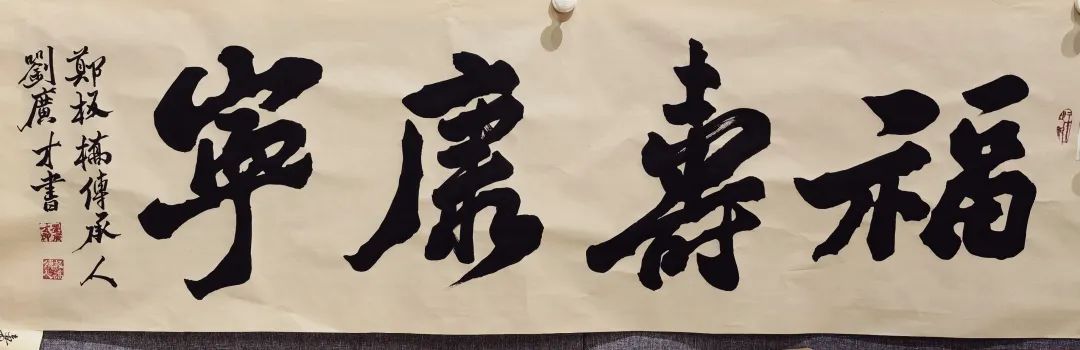 福壽康寧
鄭板橋傳承人
劉廣才書